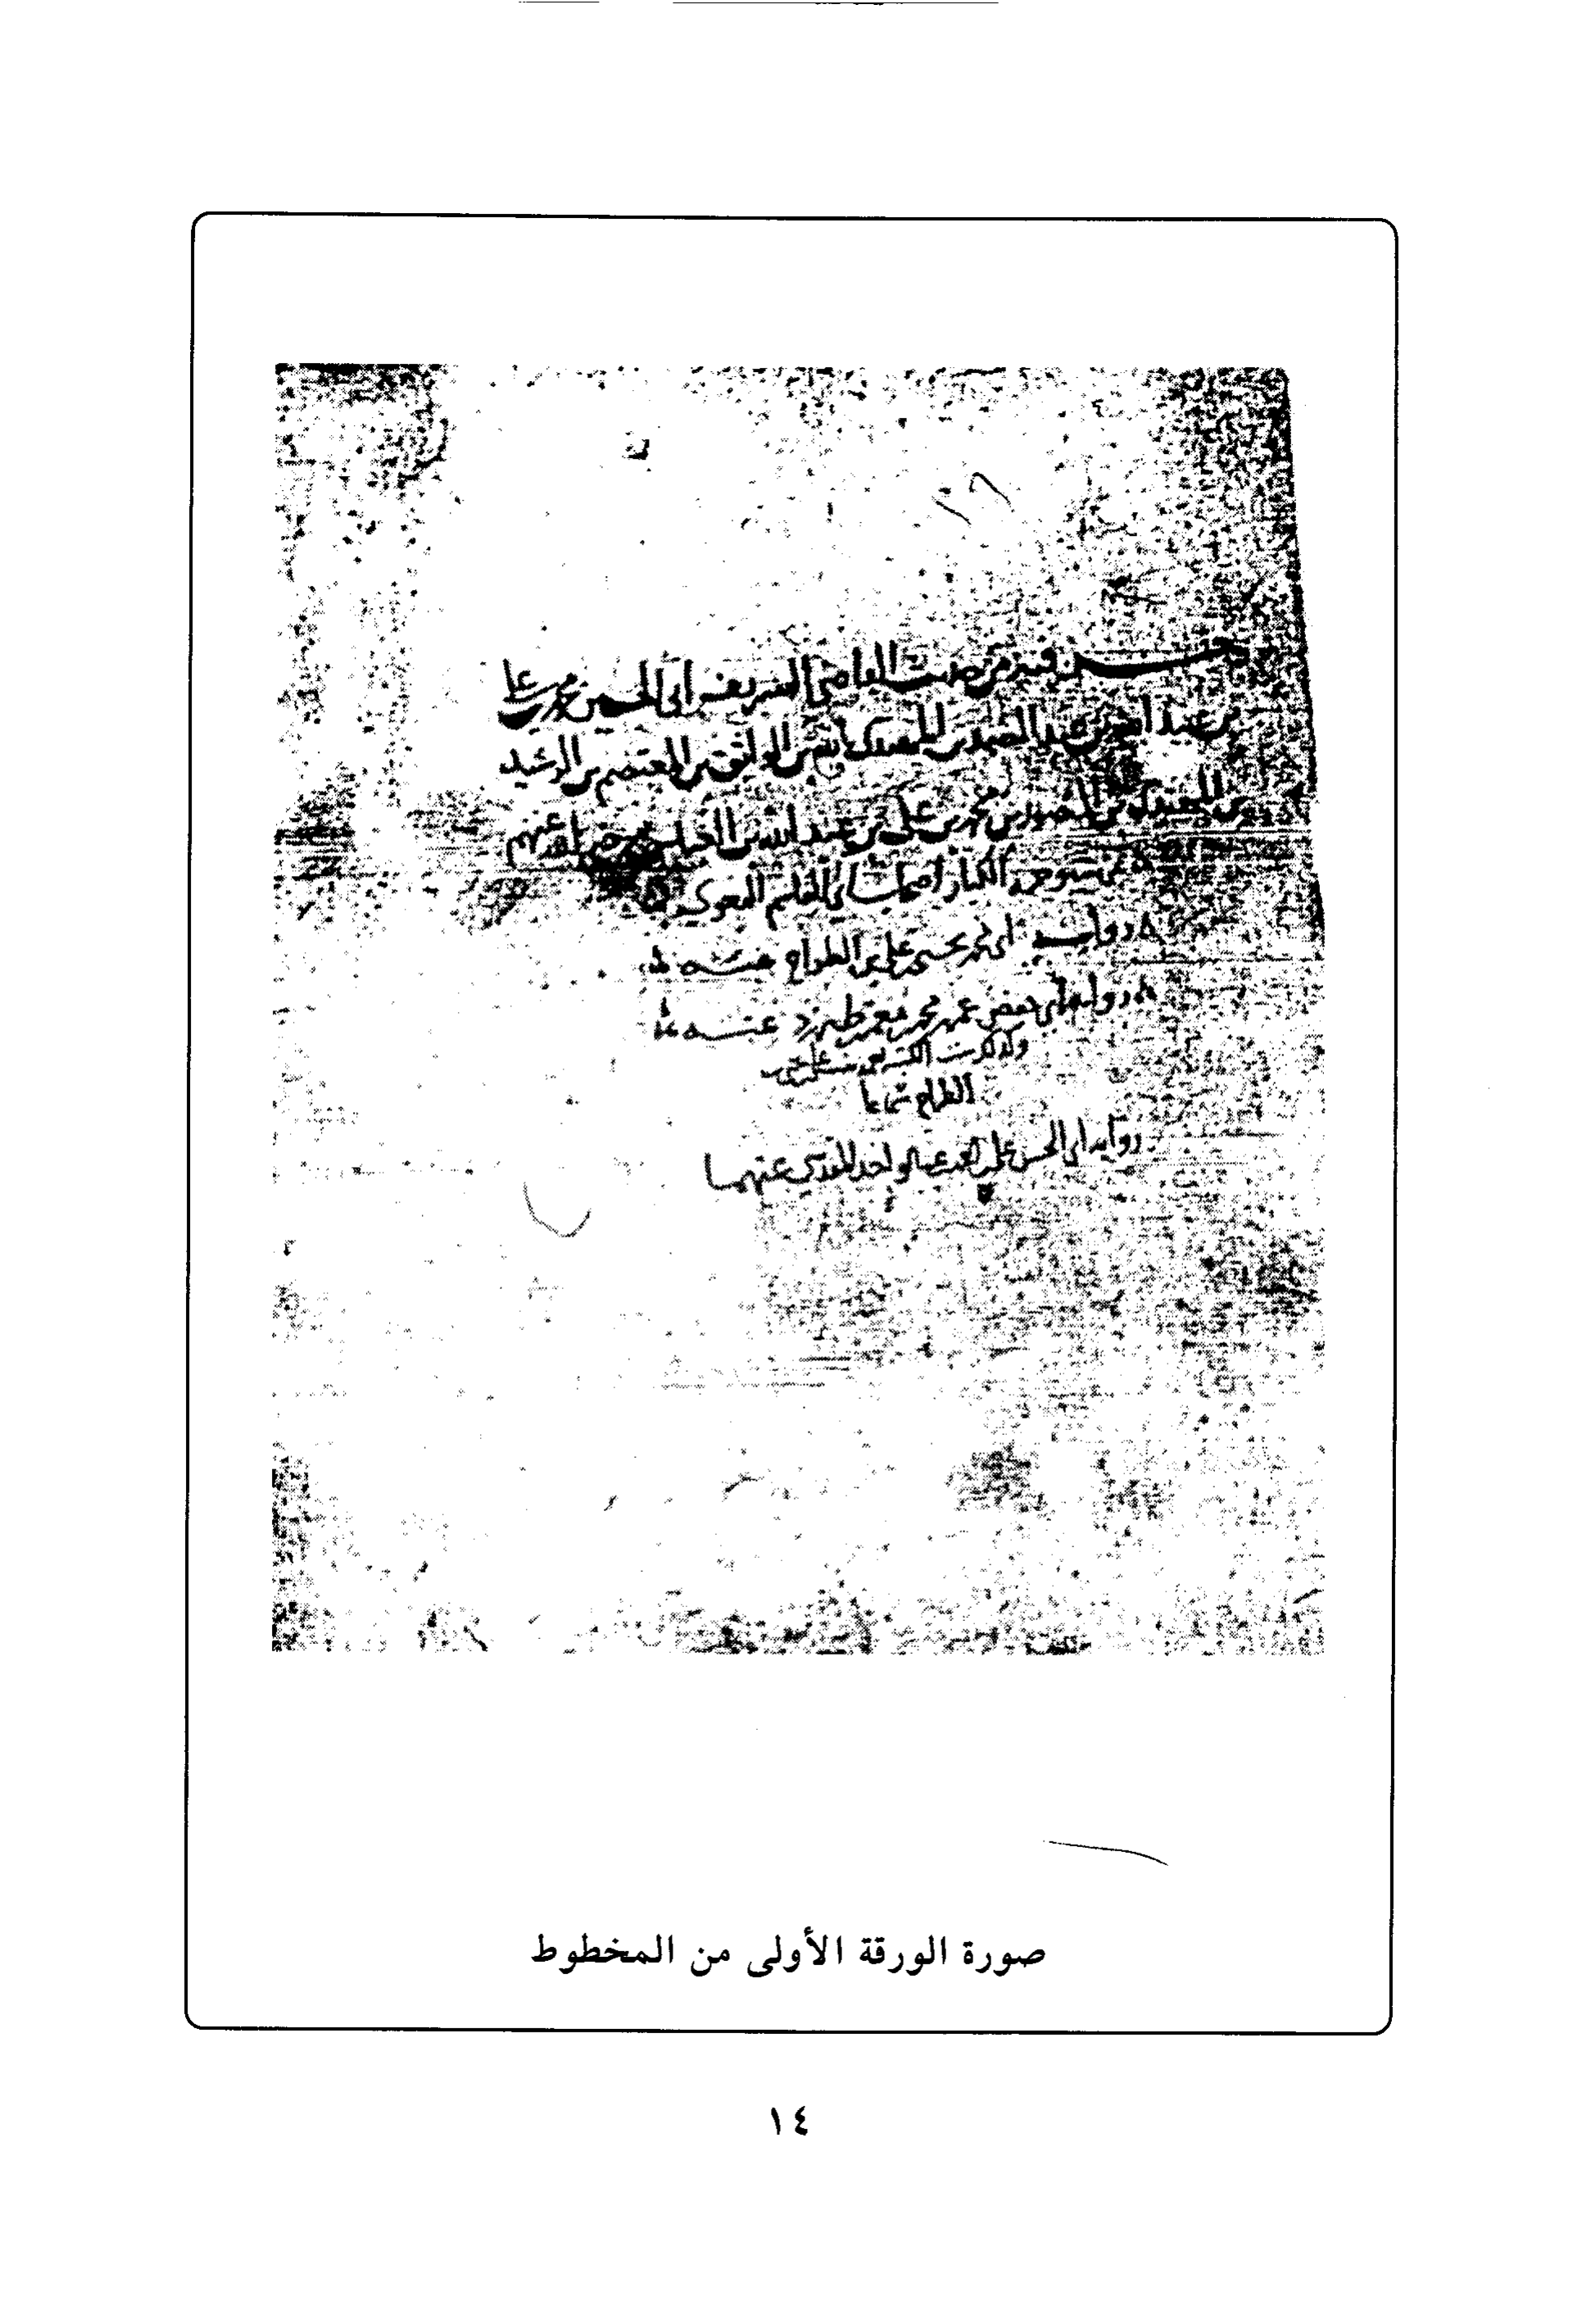 جزء فيه من حديث القاضي الشريف أبي الحسين محمد بن علي
بن عبد الله بن عبد الصمد بن المهتدي بالله بن الواثق بن المعتصم بن الرشيد
بن المهدي بن المنصور بن محمد بن علي بن عبد الله بن العباس رضي الله عنهم
عن شيوخه الكبار أصحاب أبي القاسم البغوي
رواية أبي محمد يحيى بن علي بن الطراح عنه
رواية أبي حفص عمر بن محمد بن معمر بن طبرزد عنه
الطراح سماعا
رواية أبي الحسن علي بن أحمد بن عبد الواحد المقدسي عنهما
صورة الورقة الأولى من المخطوط
١٤